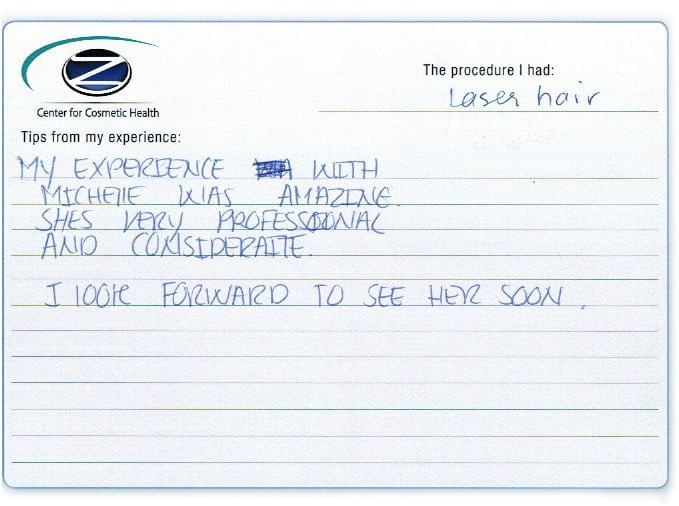 Z
Center for Cosmetic Health
The procedure I had:
Laser hair
Tips from my experience:
MY EXPERIENCE WITH
MICHElIE WAS AMAZING.
SHES VERY PROFESSIONAL
AND CONSIDERATE.
I lOOK FORWARD TO SEE HER SOON.